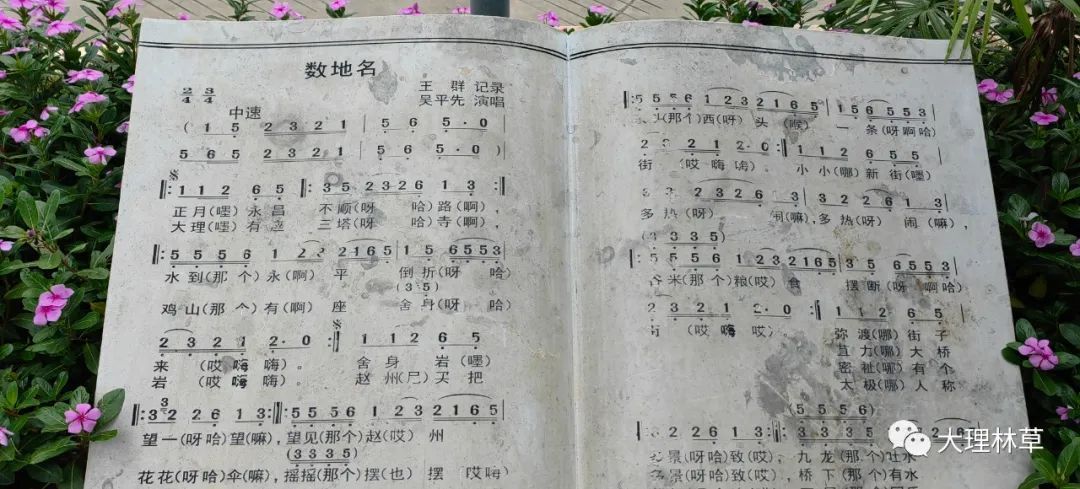 数地名
王 群 记录
吴平先 演唱
2/4 3/4
中速
( 1 5 2 3 2 1 | 5 6 5·0 |
5 6 5 2 3 2 1 | 5 6 5·0 )
𝄋
‖: 1 1 2 6 5 ‖: 3 5 2 3 2 6 1 3 :‖
正月(嘿)永昌 不顺(呀 哈)路(啊),
大理(嘿)有 三塔(呀 哈)寺(啊),
‖: 5 5 5 5 6 1 2 3 2 1 6 5 | 1 5 6 5 5 3
水到(那个)永(啊)平 倒折(呀 哈)
(3 3 5)
鸡山(那个)有(啊)座 舍身(呀 哈)
𝄋
2 3 2 1 2·0 :‖ 1 1 2 6 5
来 (哎嗨嗨)。 舍身岩(嘿)
岩 (哎嗨嗨)。 赵州(尸)买把
3
‖: 3 2 2 6 1 3 :‖: 5 5 5 6 1 2 3 2 1 6 5
望一(呀哈)望(嘛),望见(那个)赵(哎)州
(3 3 3 5)
花花(呀哈)伞(嘛),摇摇(那个)摆(也)摆 哎嗨
‖: 5 5 5 6 1 2 3 2 1 6 5 | 1 5 6 5 5 3
(那个)西(呀)头(喉) 一条(呀啊哈)
2 3 2 3 2 1 2·0 :‖ 1 1 2 6 5 5
街 (哎嗨嗨)。 小小(哪)新街(嘿)
3 2 2 3 2 6 1 3 | 3 2 2 6 1 3
多热(呀) 闹(嘛),多热(呀) 闹(嘛),
(3 3 3 5)
‖: 5 5 5 5 6 1 2 3 2 1 6 5 | 3 5 6 5 5 3
米(那个)粮(哎)食 摆断(呀 啊哈)
2 3 2 1 2·0 :‖ 1 1 2 6 5
街 (哎嗨哎)。 弥渡(哪)街子
(哪)大桥
密祉(哪)有个
太极(哪)人称
(5 5 5 6)
3 2 2 6 1 3 :‖: 3 3 3 5
景(呀哈)致(哎), 九龙(那个)吐水
景(呀哈)致(哎), 桥下(那个)有水
大理林草